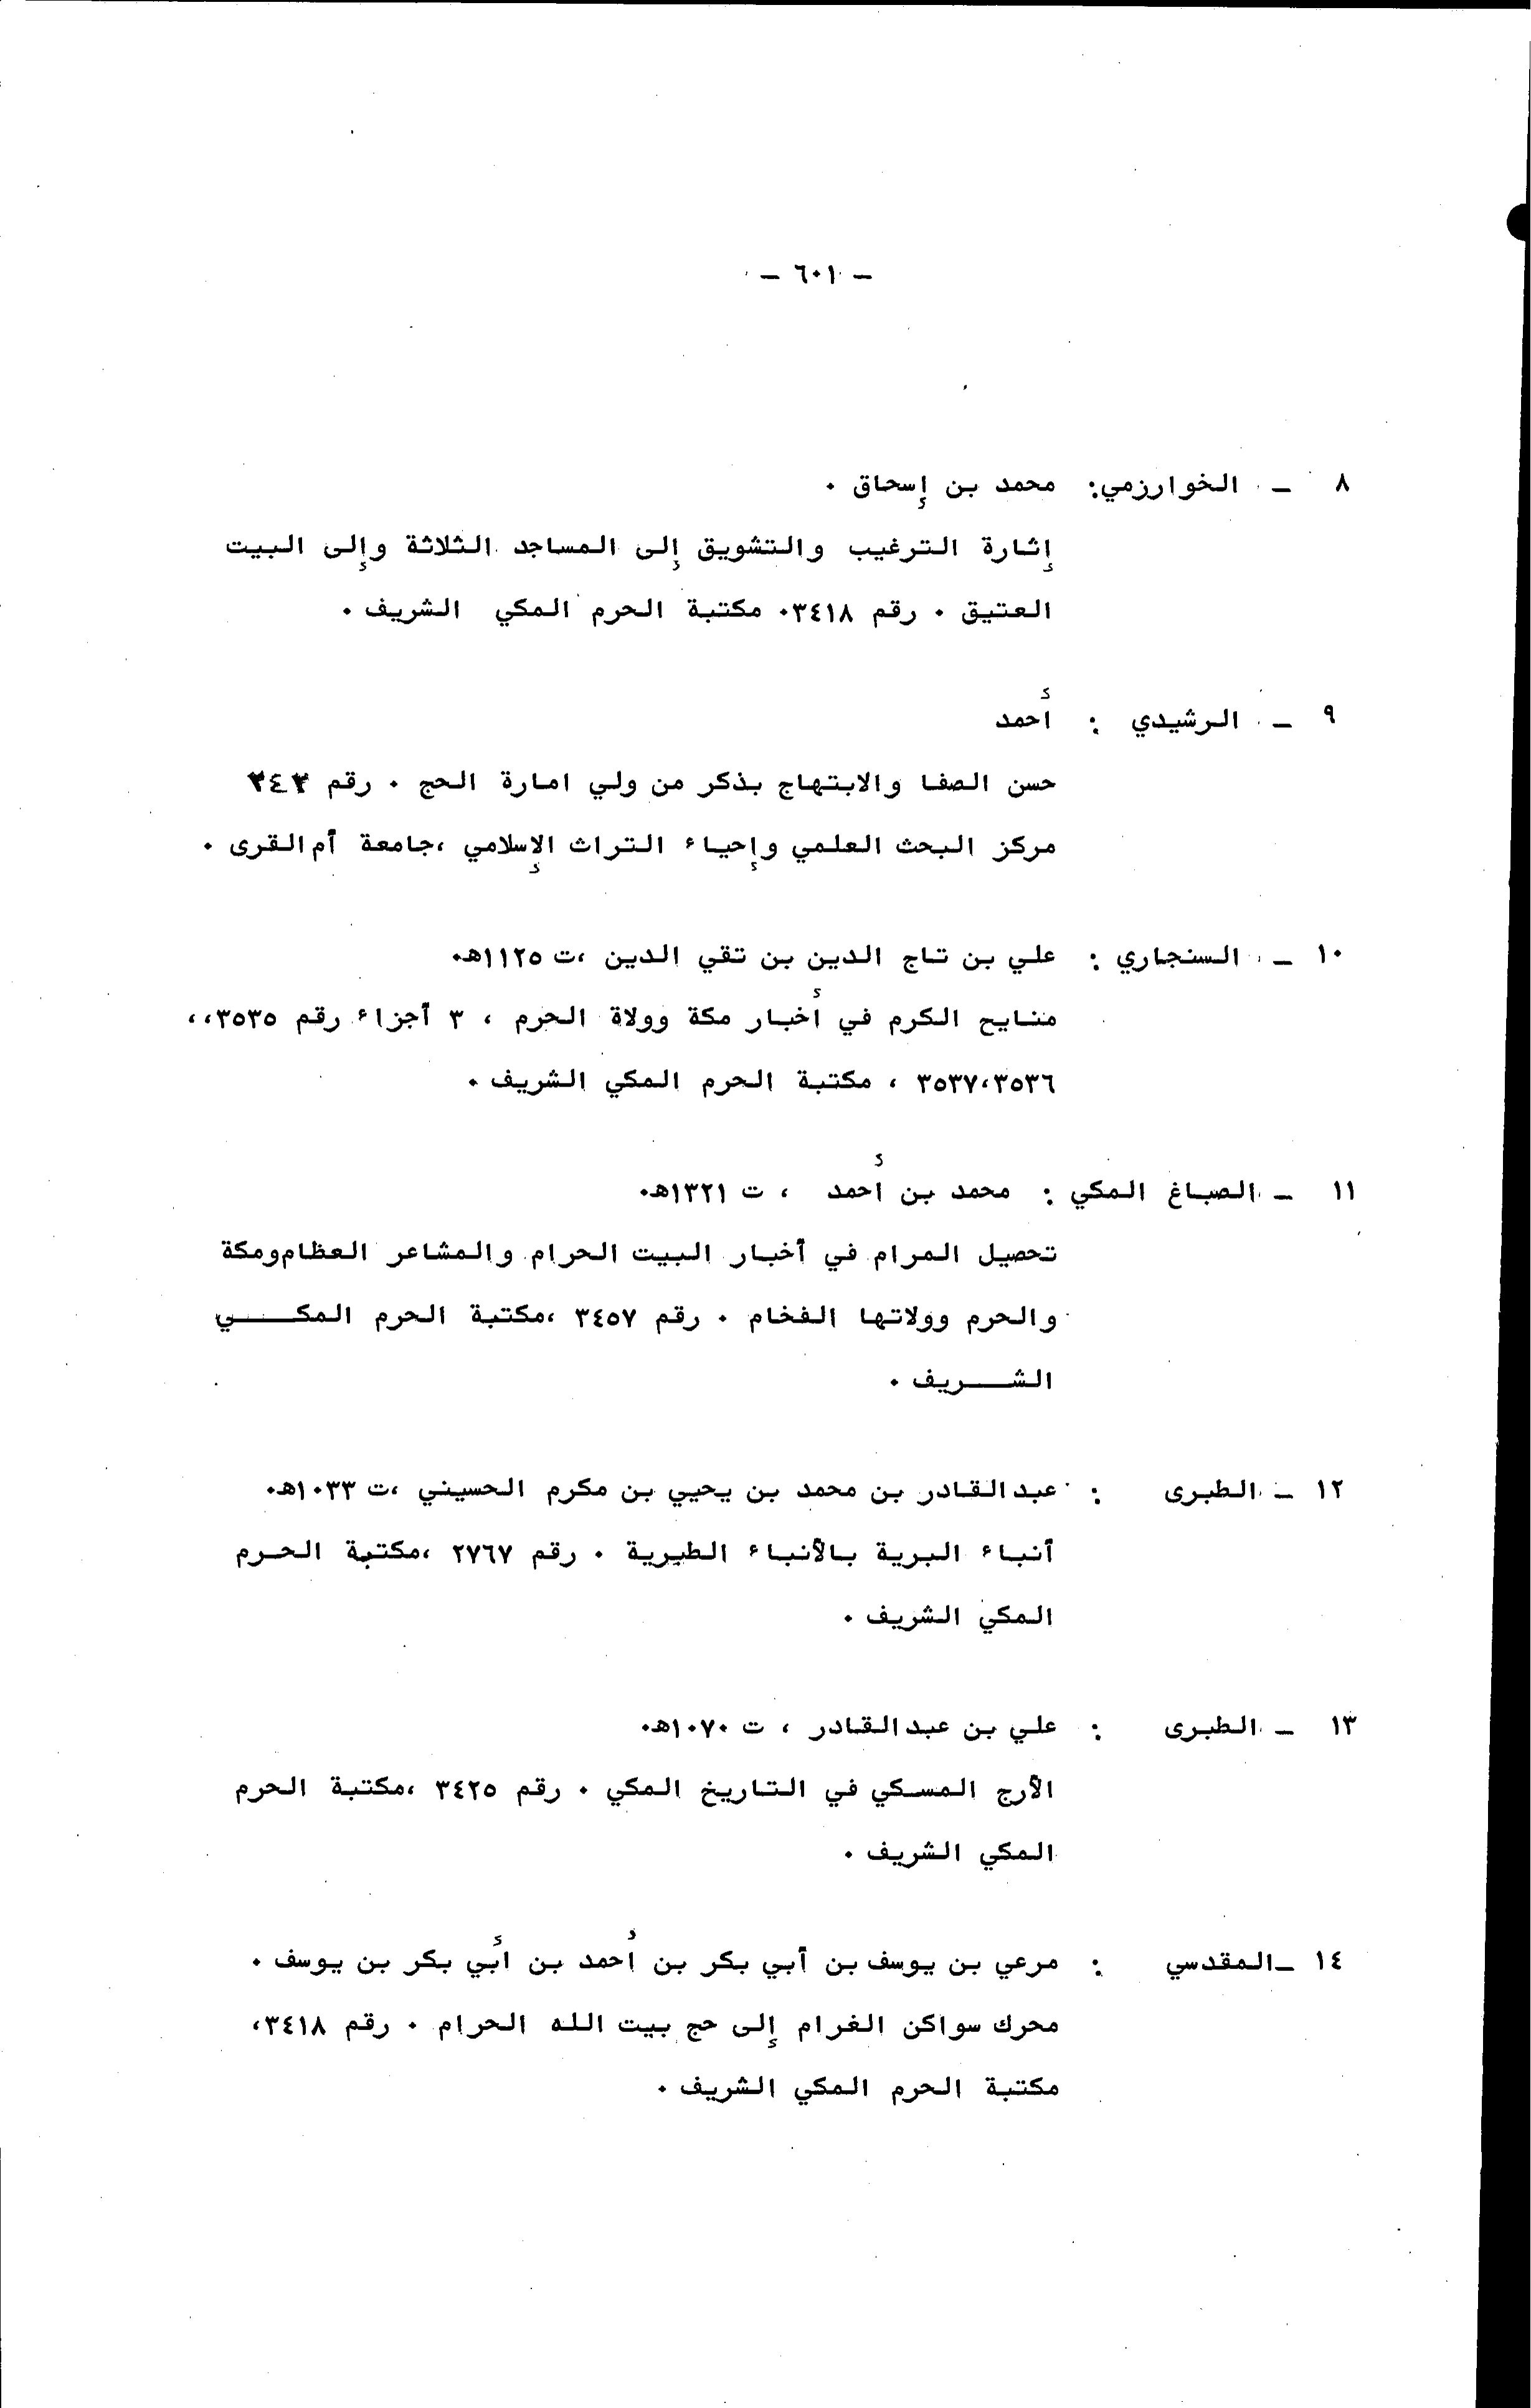 - ٦٠١ -
٨ - الخوارزمي: محمد بن إسحاق ٠
إثارة الترغيب والتشويق إلى المساجد الثلاثة وإلى البيت
العتيق ٠ رقم ٣٤١٨٠ مكتبة الحرم المكي الشريف ٠
٩ - الرشيدي : أحمد
حسن الصفا والابتهاج بذكر من ولي امارة الحج ٠ رقم ٣٤٣
مركز البحث العلمي وإحياء التراث الإسلامي ،جامعة أم القرى ٠
١٠ - السنجاري : علي بن تاج الدين بن تقي الدين ،ت ١١٢٥هـ٠
منايح الكرم في أخبار مكة وولاة الحرم ، ٣ أجزاء رقم ٣٥٣٥،،
٣٥٣٧،٣٥٣٦ ، مكتبة الحرم المكي الشريف ٠
١١ - الصباغ المكي : محمد بن أحمد ، ت ١٣٢١هـ٠
تحصيل المرام في أخبار البيت الحرام والمشاعر العظام ومكة
والحرم وولاتها الفخام ٠ رقم ٣٤٥٧ ،مكتبة الحرم المكــــي
الشــــريف ٠
١٢ - الطبرى : عبدالقادر بن محمد بن يحيي بن مكرم الحسيني ،ت ١٠٣٣هـ٠
أنباء البرية بالأنباء الطبرية ٠ رقم ٢٧٦٧ ،مكتبة الحرم
المكي الشريف ٠
١٣ - الطبرى : علي بن عبدالقادر ، ت ١٠٧٠هـ٠
الأرج المسكي في التاريخ المكي ٠ رقم ٣٤٢٥ ،مكتبة الحرم
المكي الشريف ٠
١٤ -المقدسي : مرعي بن يوسف بن أبي بكر بن أحمد بن أبي بكر بن يوسف ٠
محرك سواكن الغرام إلى حج بيت الله الحرام ٠ رقم ٣٤١٨،
مكتبة الحرم المكي الشريف ٠